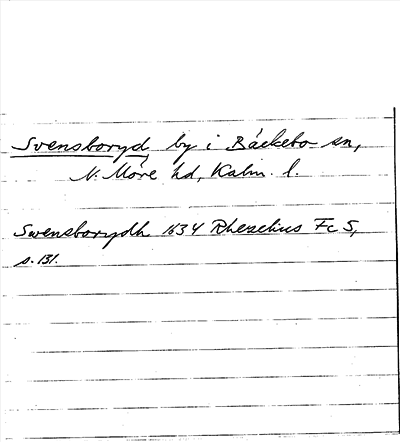 Svensboryd by i Bäckebo sn,
N. Möre hd, Kalm. l.
Swensborydh 1634 Rhezelius Fc 5,
s. 131.